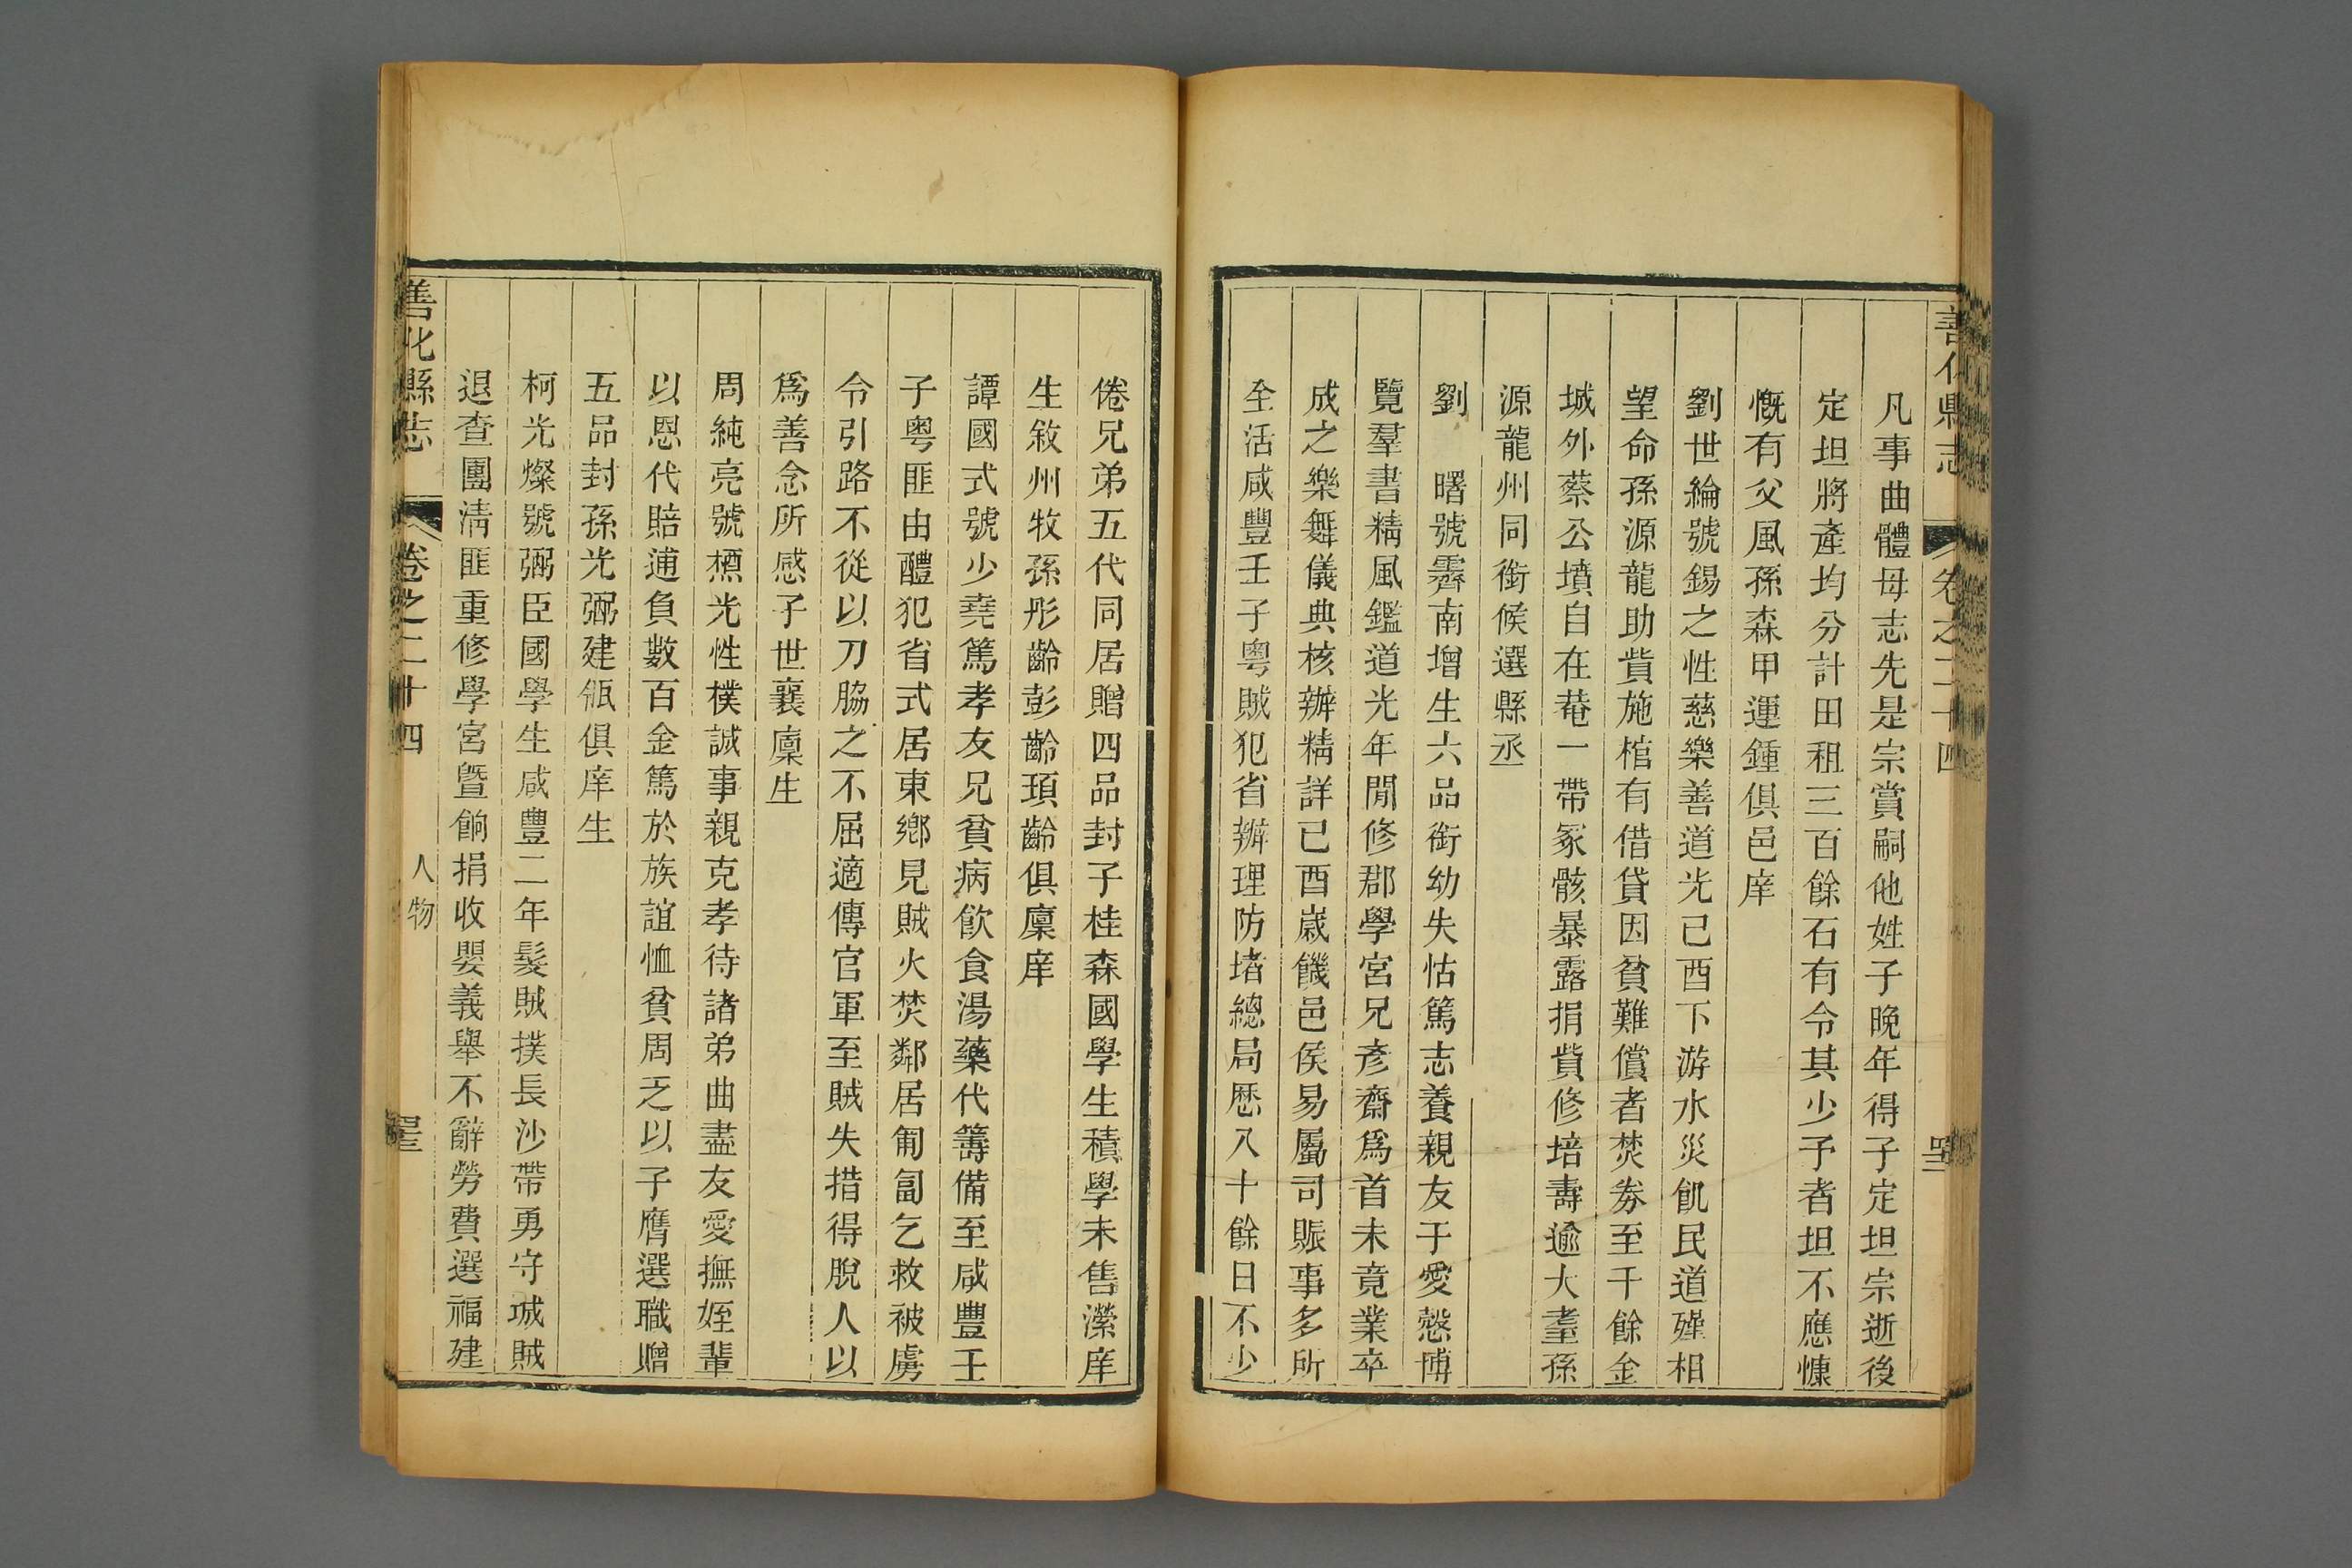 善化縣志 卷之二十四 四十二
凡事曲體母志先是宗賞嗣他姓子晚年得子定坦宗逝後
定坦將產均分計田租三百餘石有令其少予者坦不應慷
慨有父風孫森甲運鍾俱邑庠
劉世綸號錫之性慈樂善道光己酉下游水災飢民道殣相
望命孫源龍助貲施棺有借貸因貧難償者焚券至千餘金
城外蔡公墳自在菴一帶冢骸暴露捐貲修培壽逾大耋孫
源龍州同銜候選縣丞
劉 曙號霽南增生六品銜幼失怙篤志養親友于愛慤博
覽羣書精風鑑道光年閒修郡學宮兄彥齋為首未竟業卒
成之樂舞儀典核辦精詳已酉歲饑邑侯易屬司賑事多所
全活咸豐壬子粵賊犯省辦理防堵總局歷八十餘日不少
倦兄弟五代同居贈四品封子桂森國學生積學未售瀠庠
生敘州牧孫彤齡彭齡頊齡俱廩庠
譚國式號少堯篤孝友兄貧病飲食湯藥代籌備至咸豐壬
子粵匪由醴犯省式居東鄉見賊火焚鄰居匍匐乞救被虜
令引路不從以刀脇之不屈適傳官軍至賊失措得脫人以
為善念所感子世襄廩生
周純亮號槱光性樸誠事親克孝待諸弟曲盡友愛撫姪輩
以恩代賠逋負數百金篤於族誼恤貧周乏以子膺選職贈
五品封孫光弼建瓴俱庠生
柯光燦號弼臣國學生咸豐二年髮賊撲長沙帶勇守城賊
退查團清匪重修學宮曁餉捐收嬰義舉不辭勞費選福建
善化縣志 卷之二十四 人物 四十三